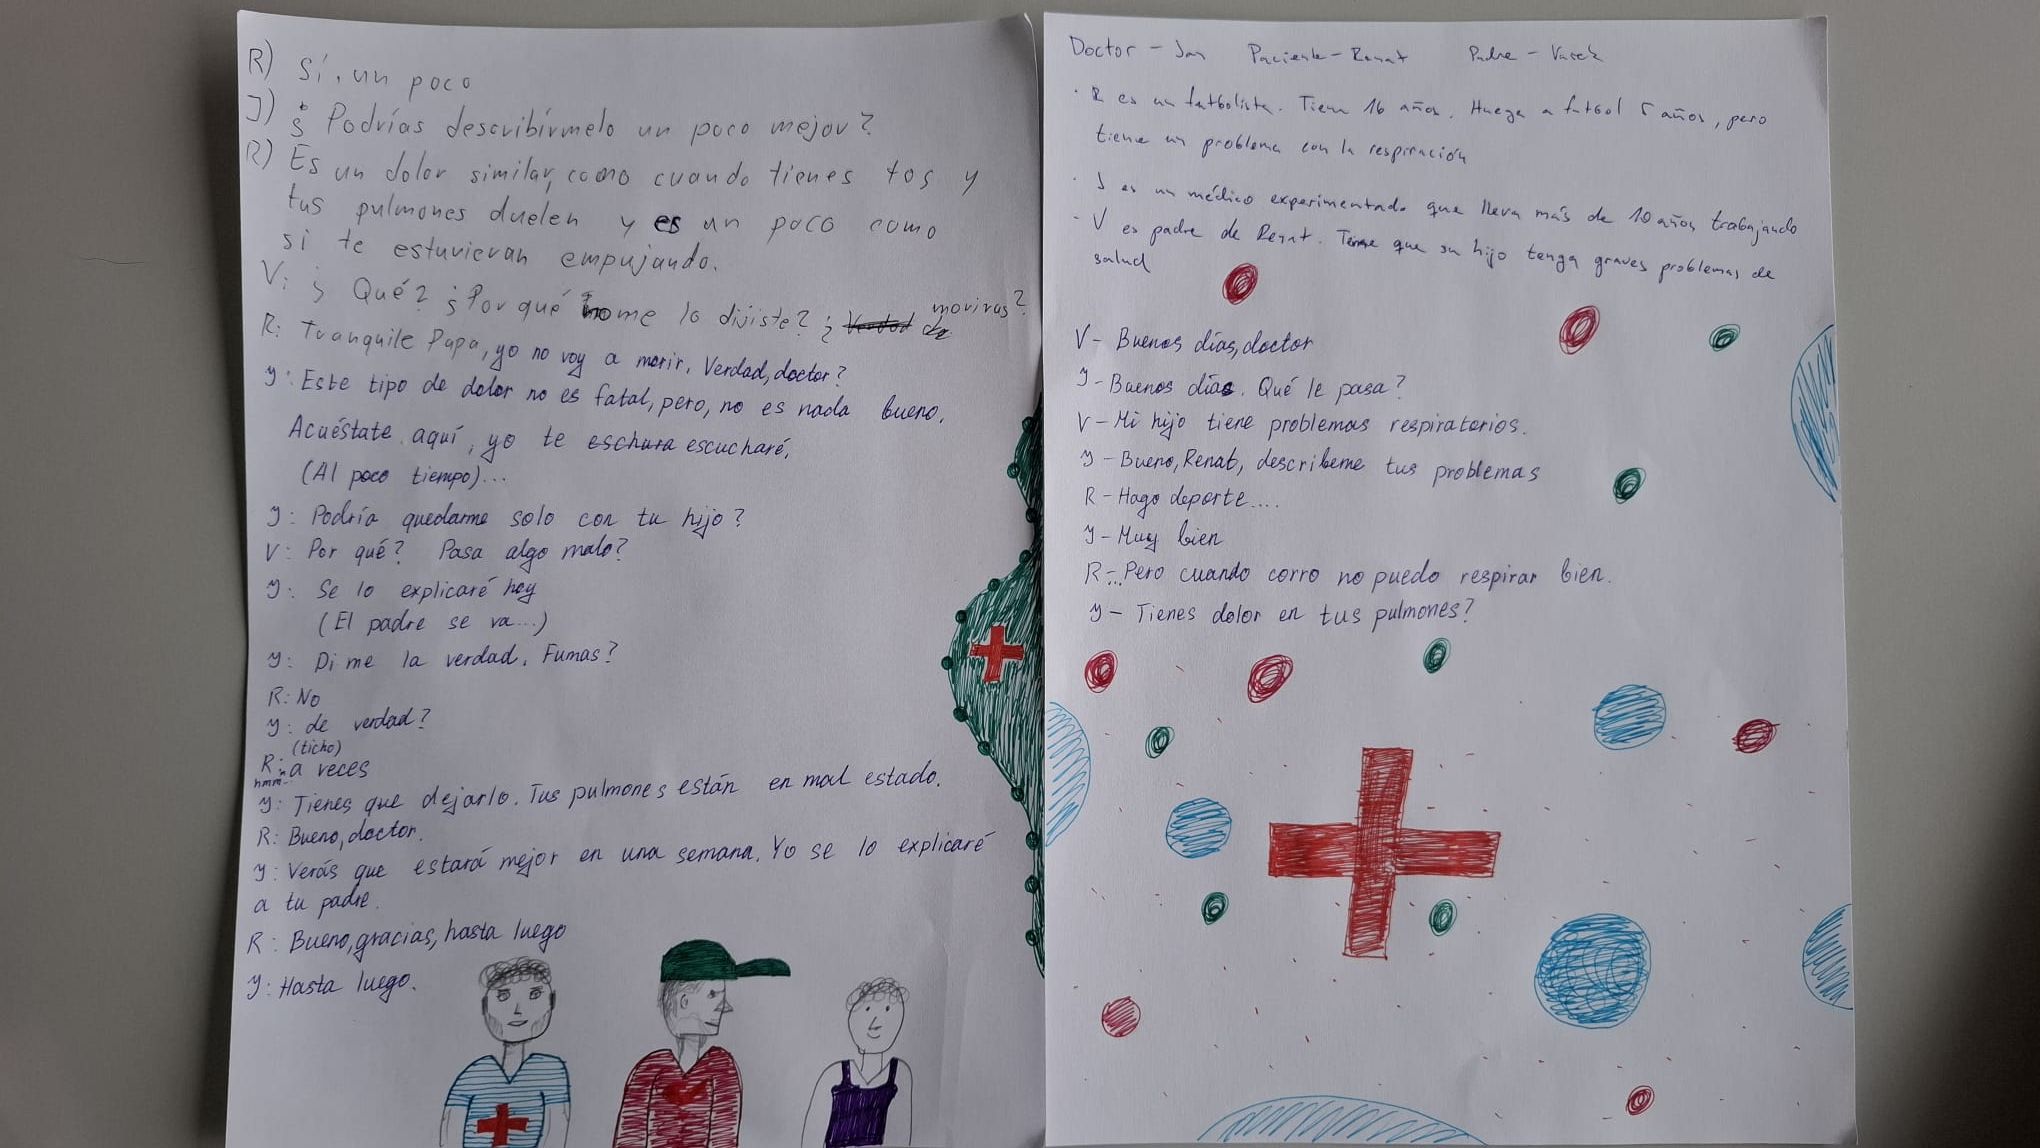 Doctor - Jan Paciente - Renat Padre - Vasek
· R es un futbolista. Tiene 16 años. Huega a futbol 5 años, pero
tiene un problema con la respiración
· J es un médico experimentado que lleva más de 10 años trabajando
- V es padre de Renat. Teme que su hijo tenga graves problemas de
salud
V - Buenos días, doctor
J - Buenos días. Qué le pasa?
V - Mi hijo tiene problemas respiratorios.
J - Bueno, Renat, descríbeme tus problemas
R - Hago deporte....
J - Muy bien
R - ...Pero cuando corro no puedo respirar bien.
J - Tienes dolor en tus pulmones?
R) Sí, un poco
J) ¿ Podrías describírmelo un poco mejor?
R) Es un dolor similar, como cuando tienes tos y
tus pulmones duelen y es un poco como
si te estuvieran empujando.
V: ¿ Qué? ¿Por qué no me lo dijiste? ¿ morivas?
R: Tranquile Papa, yo no voy a morir. Verdad, doctor?
J: Este tipo de dolor no es fatal, pero, no es nada bueno.
Acuéstate aquí, yo te eschura escucharé.
(Al poco tiempo)...
J: Podría quedarme solo con tu hijo?
V: Por qué? Pasa algo malo?
J: Se lo explicaré hoy
(El padre se va...)
J: Di me la verdad. Fumas?
R: No
J: de verdad?
(ticho)
R: a veces
hmm..
J: Tienes que dejarlo. Tus pulmones están en mal estado.
R: Bueno, doctor.
J: Verás que estará mejor en una semana. Yo se lo explicaré
a tu padre.
R: Bueno, gracias, hasta luego
J: Hasta luego.